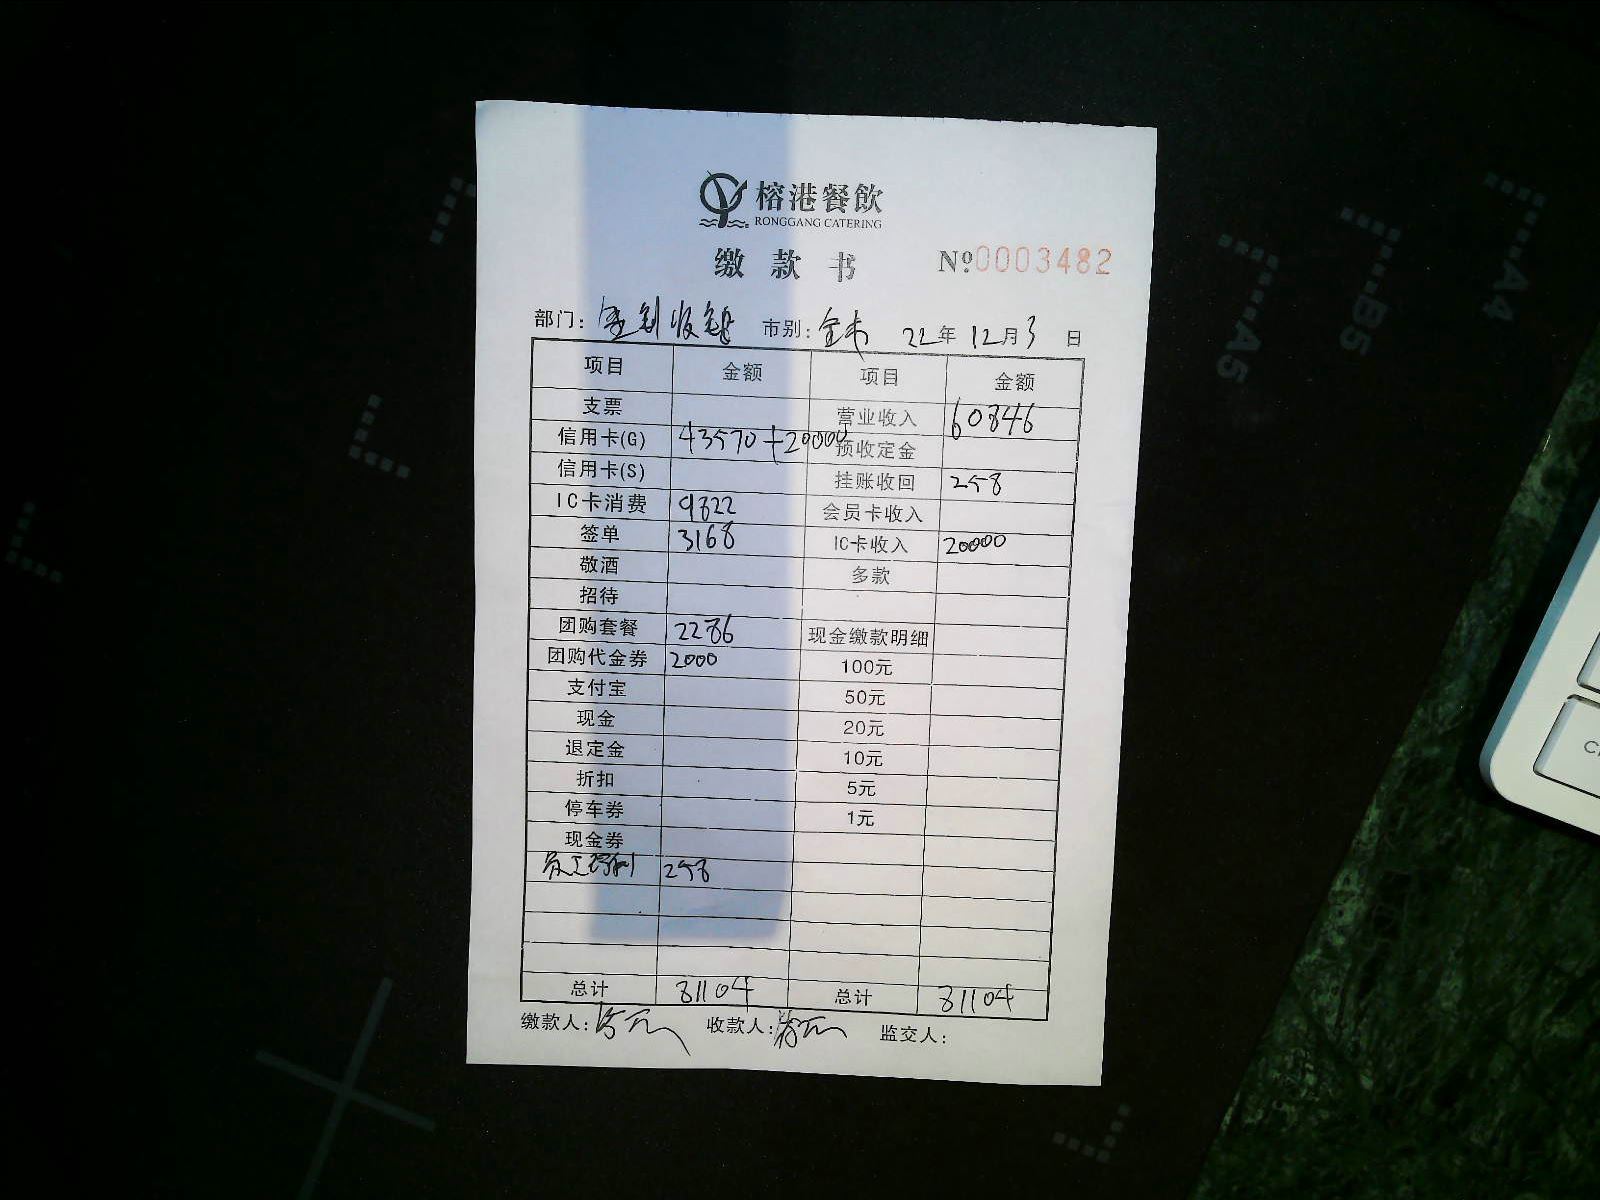 榕港餐飲
RONGGANG CATERING
缴款书 №0003482
部门: 收银 市别: 全市 22年12月3日
项目 金额 项目 金额
支票 营业收入 60846
信用卡(G) 43570+20000 预收定金
信用卡(S) 挂账收回 258
IC卡消费 9822 会员卡收入
签单 3168 IC卡收入 20000
敬酒 多款
招待
团购套餐 2286 现金缴款明细
团购代金券 2000 100元
支付宝 50元
现金 20元
退定金 10元
折扣 5元
停车券 1元
现金券
员工福利 258
总计 81104 总计 81104
缴款人: 收款人: 监交人:
A4
B5
A5